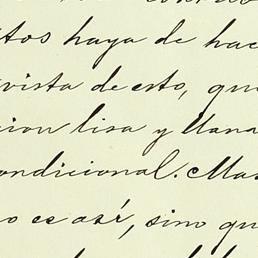 tos haya de hac
vista de esto, qu
cion lisa y llana
ondicional. Mas
o es así, sino qu